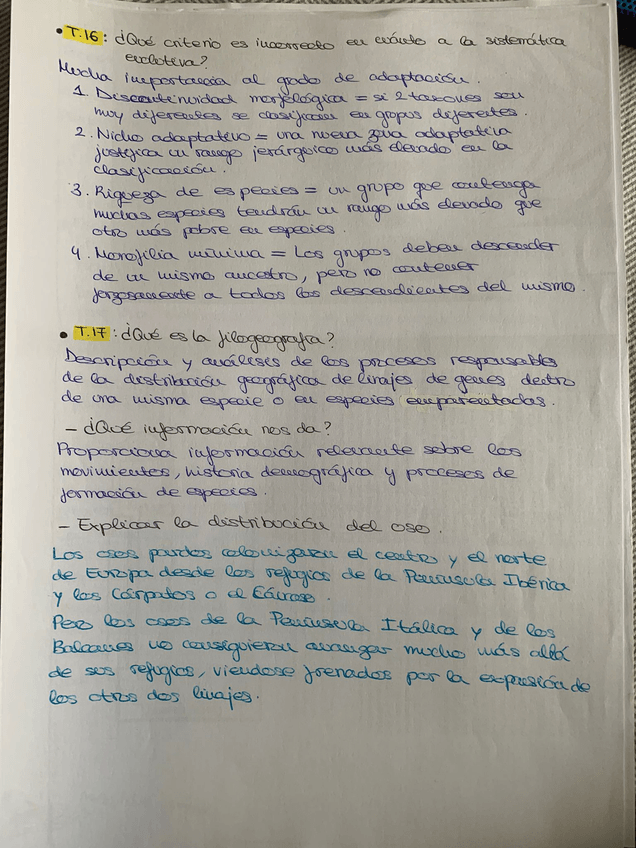 • T.16: ¿Qué criterio es incorrecto en cuánto a la sistemática
evolutiva?
Mucha importancia al grado de adaptación.
1. Discontinuidad morfológica = si 2 taxones son
muy diferentes se clasifican en grupos diferentes.
2. Nicho adaptativo = una nueva zona adaptativa
justifica un rango jerárquico más elevado en la
clasificación.
3. Riqueza de especies = un grupo que contenga
muchas especies tendrán un rango más elevado que
otro más pobre en especies.
4. Monofilia mínima = Los grupos deben descender
de un mismo ancestro, pero no contener
forzosamente a todos los descendientes del mismo.
• T.17: ¿Qué es la filogeografía?
Descripción y análisis de los procesos responsables
de la distribución geográfica de linajes de genes dentro
de una misma especie o en especies emparentadas.
- ¿Qué información nos da?
Proporciona información relevante sobre los
movimientos, historia demográfica y procesos de
formación de especies.
- Explicar la distribución del oso.
Los osos pardos colonizaron el centro y el norte
de Europa desde los refugios de la Península Ibérica
y los Cárpatos o el Cáucaso.
Pero los osos de la Península Itálica y de los
Balcanes no consiguieron avanzar mucho más allá
de sus refugios, viendose frenados por la expasión de
los otros dos linajes.